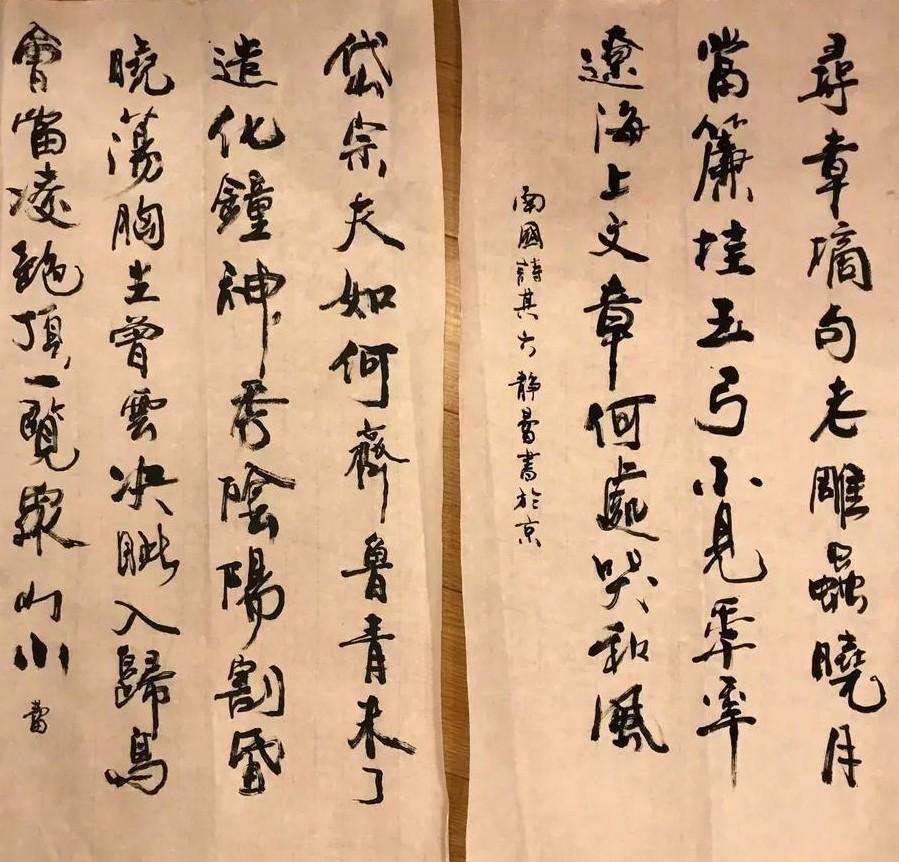 尋章摘句老雕蟲曉月
當簾挂玉弓不見年年
遼海上文章何處哭秋風
南國詩其六 靜書於京
岱宗夫如何齊魯青未了
造化鐘神秀陰陽割昏
曉蕩胸生曾雲决眦入歸鳥
會當凌絕頂一覽眾山小